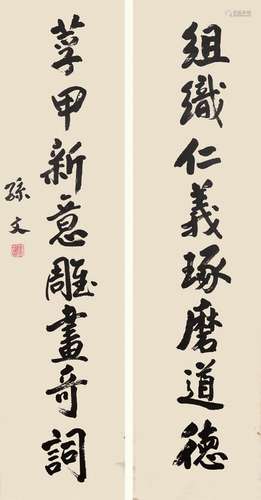 組織仁義琢磨道德
莩甲新意雕畫奇詞
孫文